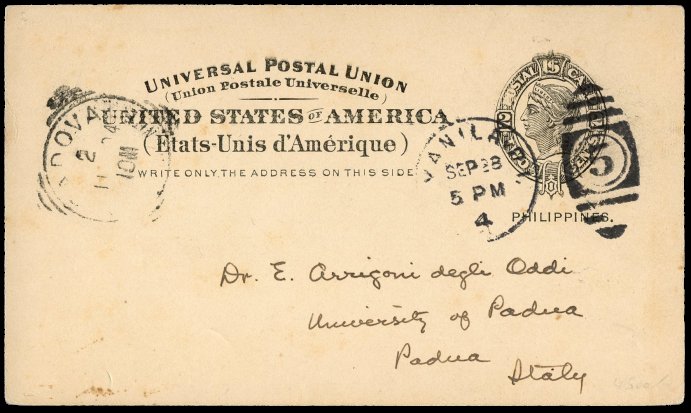 UNIVERSAL POSTAL UNION
(Union Postale Universelle)
UNITED STATES OF AMERICA
(États-Unis d'Amérique)
WRITE ONLY THE ADDRESS ON THIS SIDE
POSTAL CARD
PHILIPPINES.
PADOVA
2
10M
MANILA
SEP 28
5 PM
4
5
Dr. E. Arrigoni degli Oddi
University of Padua
Padua
Italy